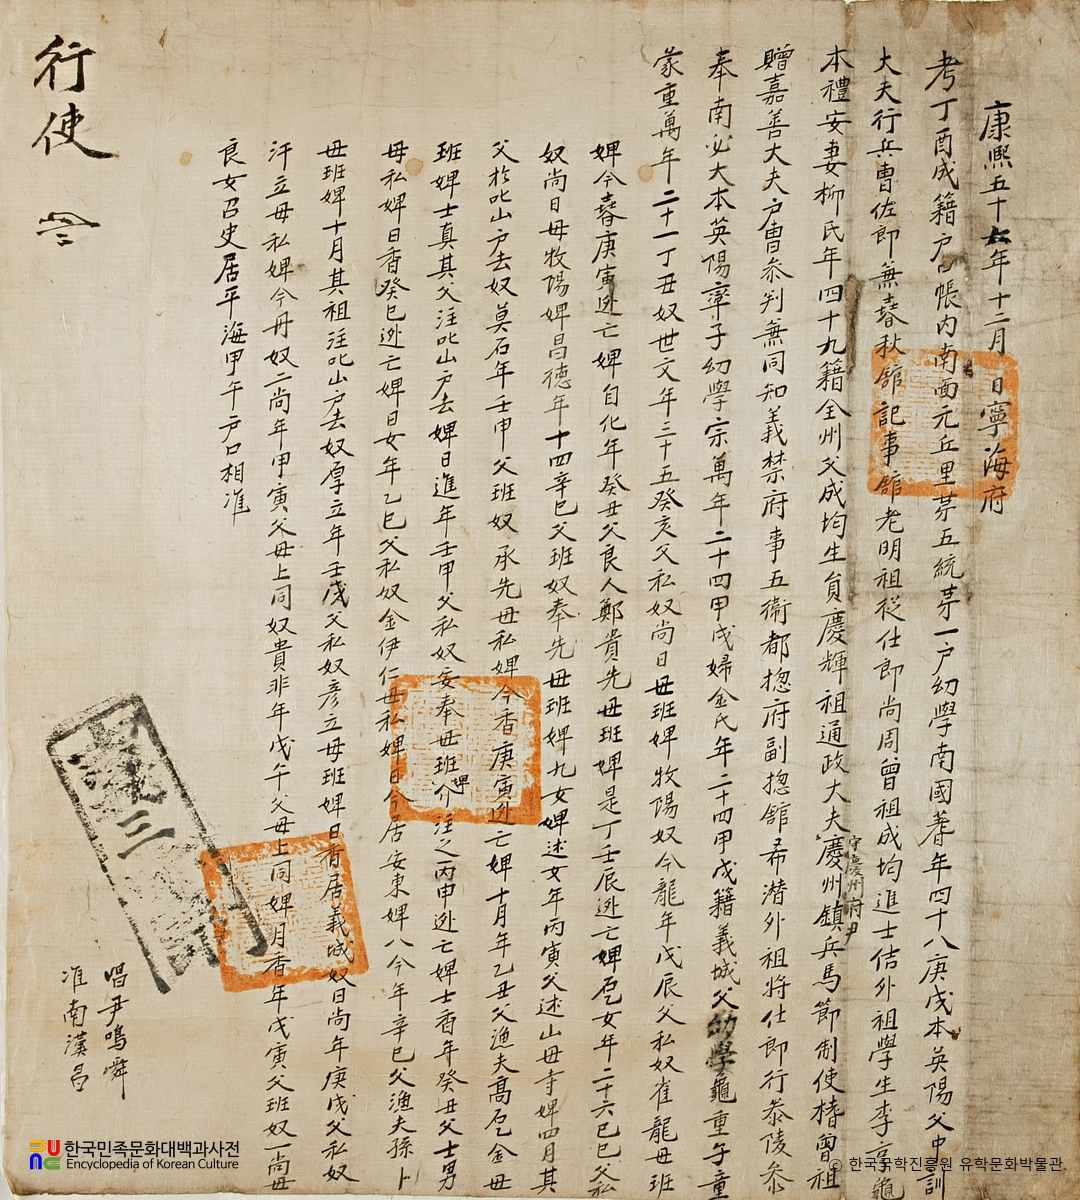 康熙五十六年十二月 日寧海府
考丁酉成籍户口帳内南面元丘里苐五統苐一户幼學南國耈年四十八庚戌本英陽父中訓
大夫行兵曹佐郎兼春秋館記事館老明祖從仕郎尚周曾祖成均進士佶外祖學生李京龜
本禮安妻柳氏年四十九籍全州父成均生員慶輝祖通政大夫守慶州府尹慶州鎮兵馬節制使㮨曾祖
贈嘉善大夫户曹叅判兼同知義禁府事五衛都摠府副摠館希潜外祖將仕郎行泰陵叅
奉南必大本英陽率子幼學宗萬年二十四甲戌婦金氏年二十四甲戌籍義城父幼學龜重子童
蒙重萬年二十一丁丑奴世文年三十五癸亥父私奴尚日毋班婢牧陽奴今龍年戊辰父私奴雀龍毋班
婢今春庚寅逃亡婢自化年癸丑父良人鄭貴先毋班婢是丁壬辰逃亡婢巵女年二十六己巳父私
奴尚日毋牧陽婢昌德年十四辛巳父班奴奉先毋班婢九女婢述女年丙寅父述山毋寺婢四月其
父於叱山户去奴莫石年壬申父班奴承先毋私婢今香庚寅逃亡婢十月年乙丑父漁夫高巵金毋
班婢士真其父注叱山户去婢日進年壬甲父私奴安奉毋班婢介注之丙申逃亡婢士香年癸丑父士男
毋私婢日香癸巳逃亡婢日女年乙巳父私奴金伊仁毋私婢日今居安東婢八今年辛巳父漁夫孫卜
毋班婢十月其祖注叱山户去奴厚立年壬戌父私奴彦立毋班婢日香居義城奴日尚年庚戌父私奴
汗立毋私婢今丹奴二尚年甲寅父毋上同奴貴非年戊午父毋上同婢月香年戊寅父班奴一尚毋
良女召史居平海甲午户口相准
唱尹鳴舜
准南漢昌
行使
한국민족문화대백과사전
Encyclopedia of Korean Culture
© 한국국학진흥원 유학문화박물관.